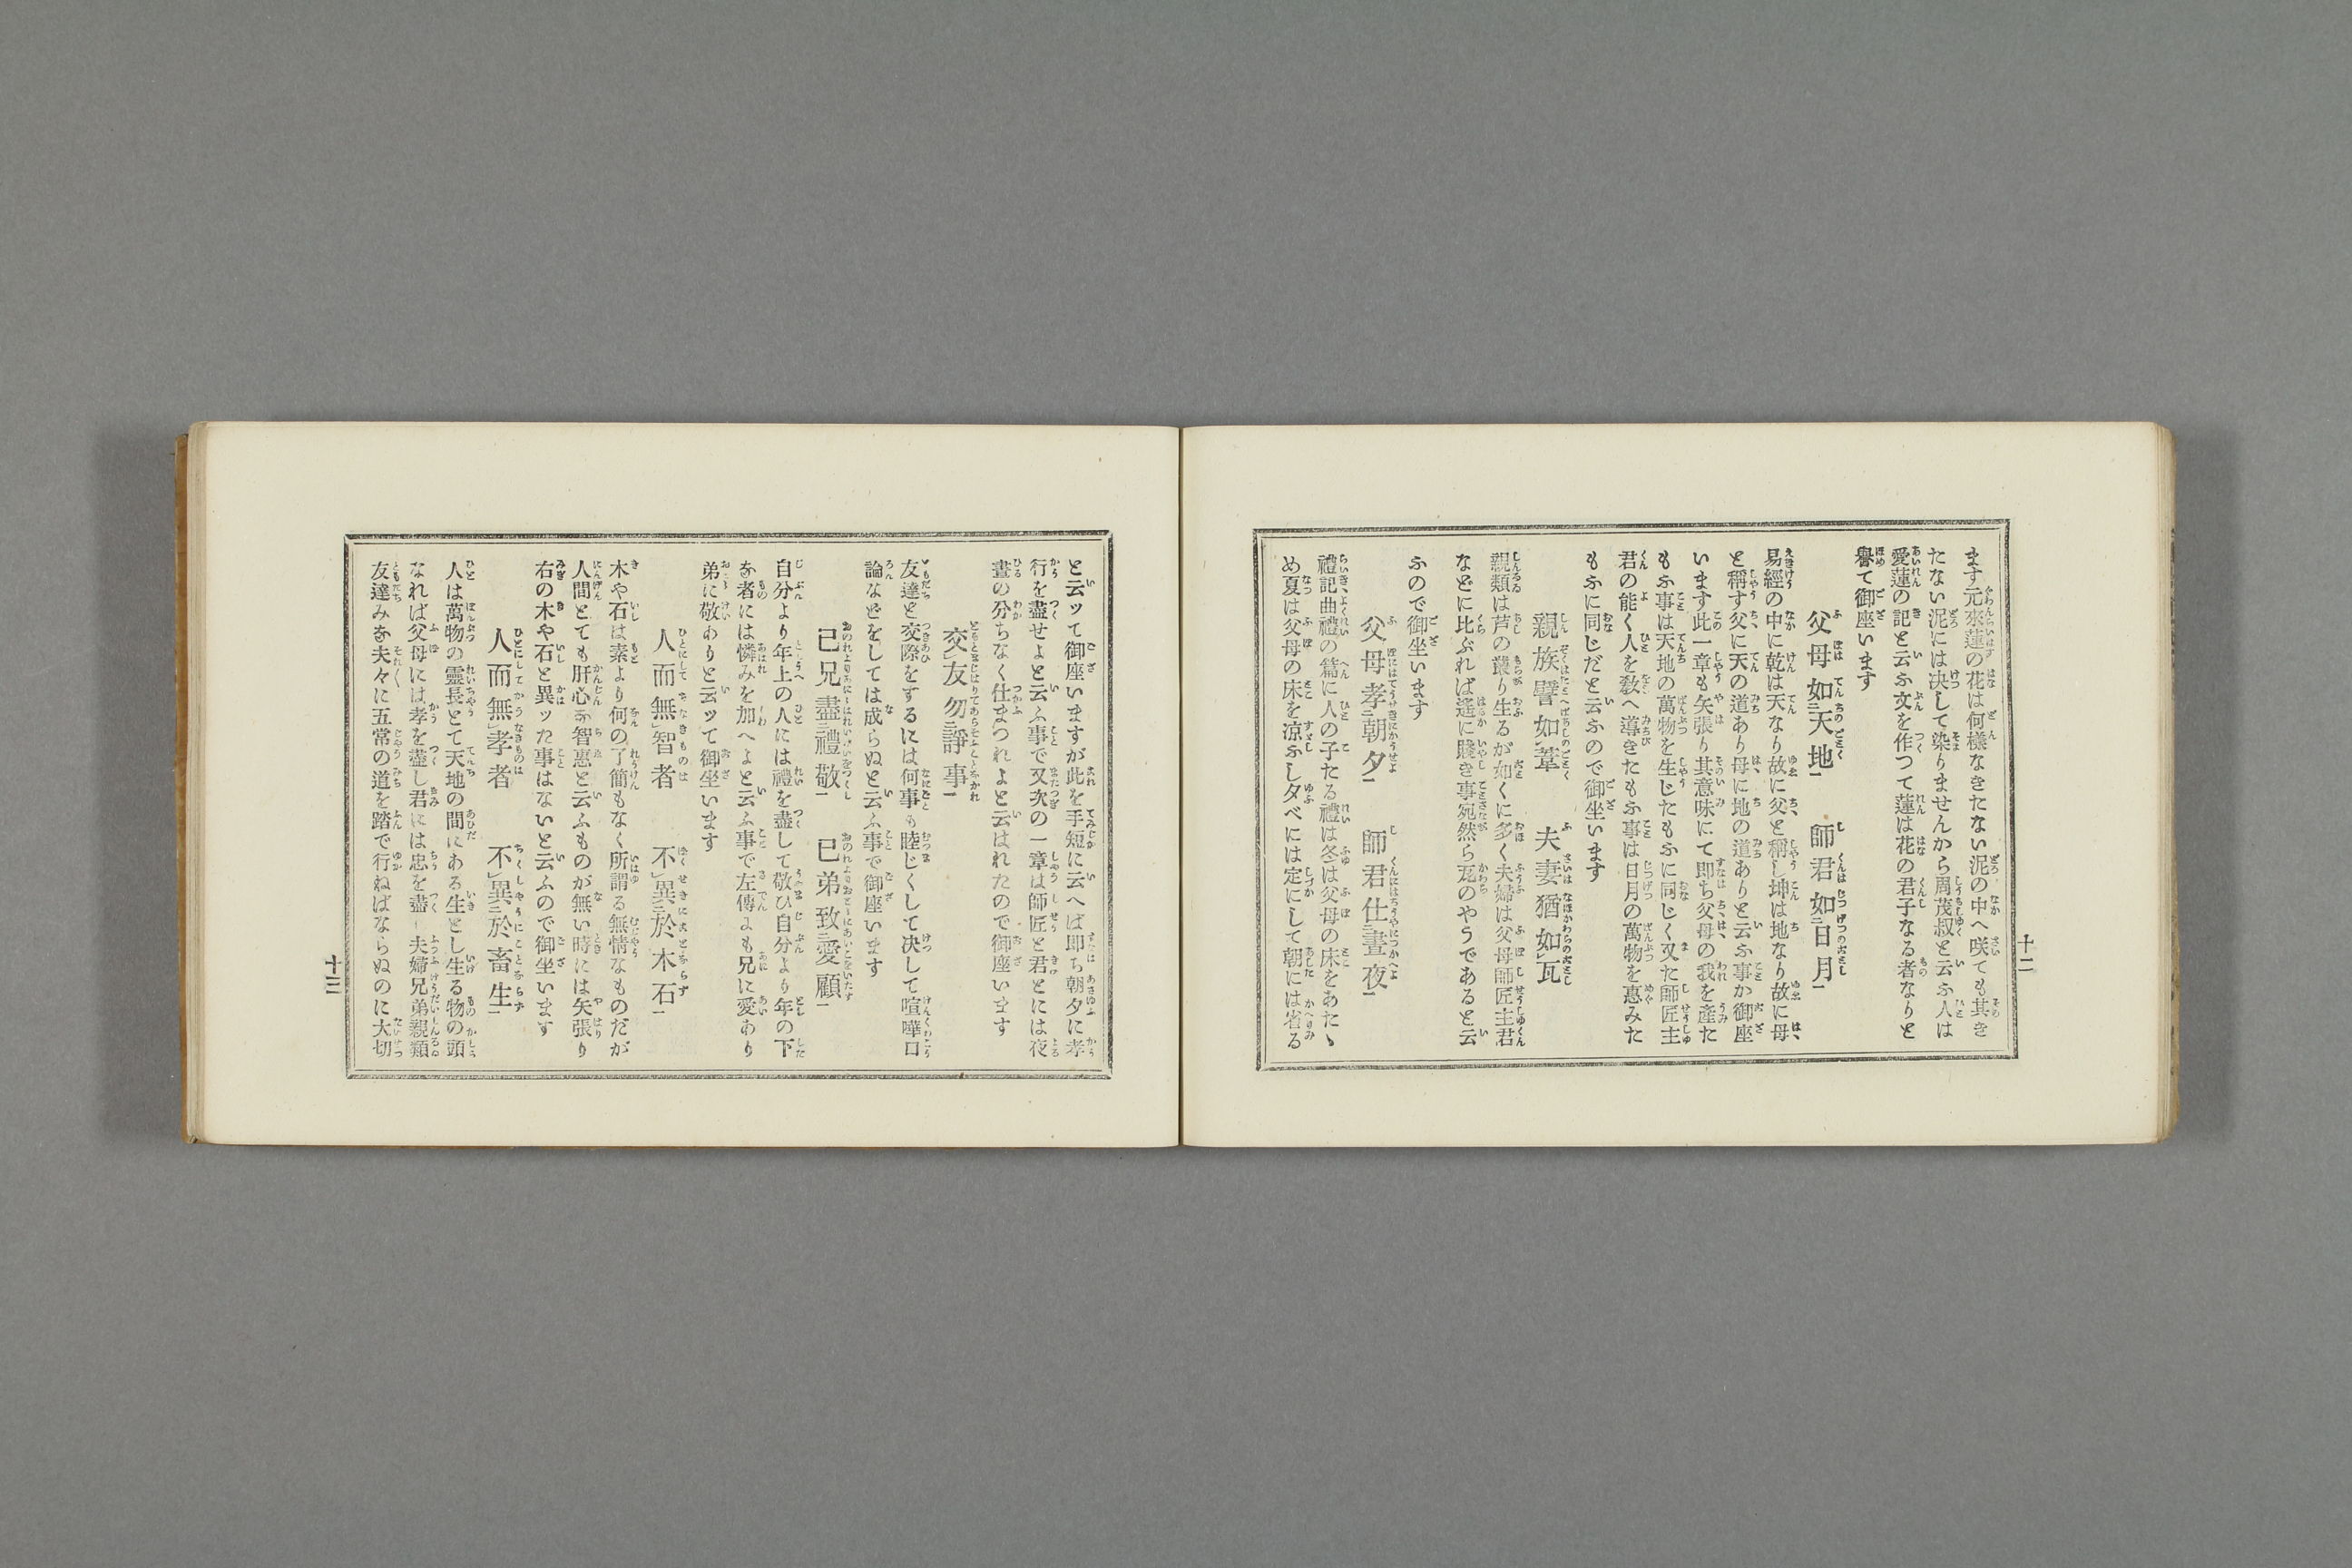 十二
ます元來蓮の花は何樣なきたない泥の中へ咲ても其き
たない泥には决して染りませんから周茂叔と云ふ人は
愛蓮の記と云ふ文を作つて蓮は花の君子なる者なりと
譽て御座います
父母如天地　師君如日月
易經の中に乾は天なり故に父と稱し坤は地なり故に母
と稱す父に天の道あり母に地の道ありと云ふ事か御座
います此一章も矢張り其意味にて即ち父母の我を產た
もふ事は天地の萬物を生じたもふに同じく又た師匠主
君の能く人を敎へ導きたもふ事は日月の萬物を惠みた
もふに同じだと云ふので御坐います
親族譬如葦　夫妻猶如瓦
親類は芦の叢り生るが如くに多く夫婦は父母師匠主君
などに比ぶれば遙に賤き事宛然ら瓦のやうであると云
ふので御坐います
父母孝朝夕　師君仕晝夜
禮記曲禮の篇に人の子たる禮は冬は父母の床をあたゝ
め夏は父母の床を凉ふし夕べには定にして朝には省る
と云ッて御座いますが此を手短に云へば即ち朝夕に孝
行を盡せよと云ふ事で又次の一章は師匠と君とには夜
晝の分ちなく仕まつれよと云はれたので御座います
交友勿諍事
友達と交際をするには何事も睦じくして决して喧嘩口
論などをしては成らぬと云ふ事で御座います
已兄盡禮敬　已弟致愛顧
自分より年上の人には禮を盡して敬ひ自分より年の下
な者には憐みを加へよと云ふ事で左傳にも兄に愛あり
弟に敬ありと云ッて御坐います
人而無智者　不異於木石
木や石は素より何の了簡もなく所謂る無情なものだが
人間とても肝心な智惠と云ふものが無い時には矢張り
右の木や石と異ッた事はないと云ふので御坐います
人而無孝者　不異於畜生
人は萬物の靈長とて天地の間にある生とし生る物の頭
なれば父母には孝を盡し君には忠を盡し夫婦兄弟親類
友達みな夫々に五常の道を踏で行ねばならぬのに大切
十三